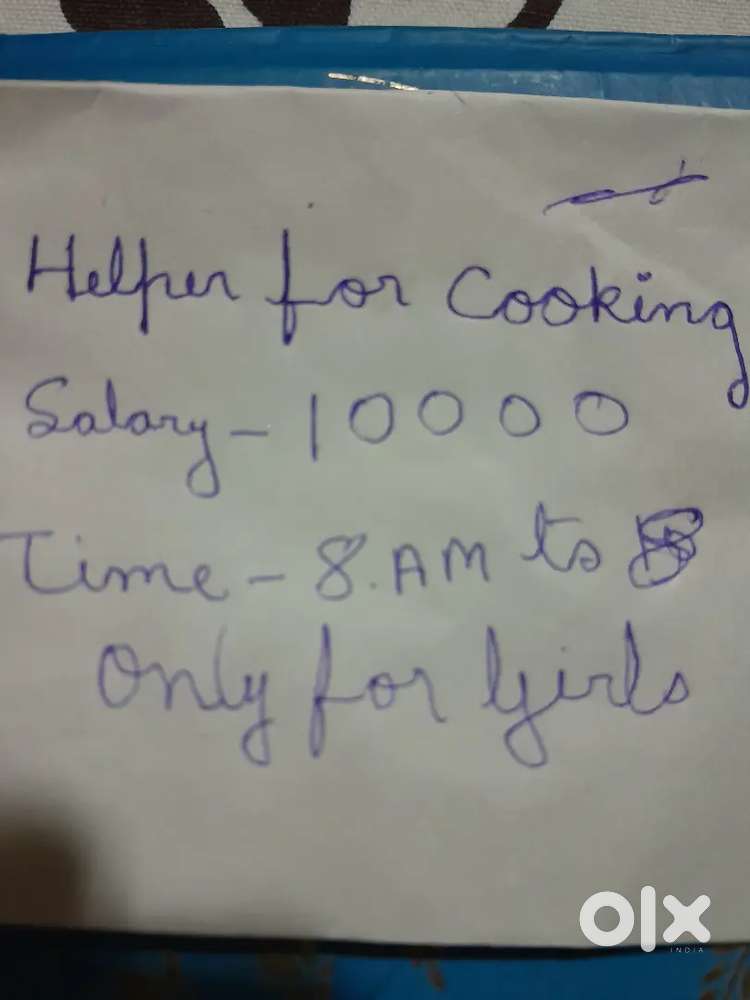 Helper for Cooking
Salary - 10000
Time - 8.AM to
Only for Girls
olx
INDIA